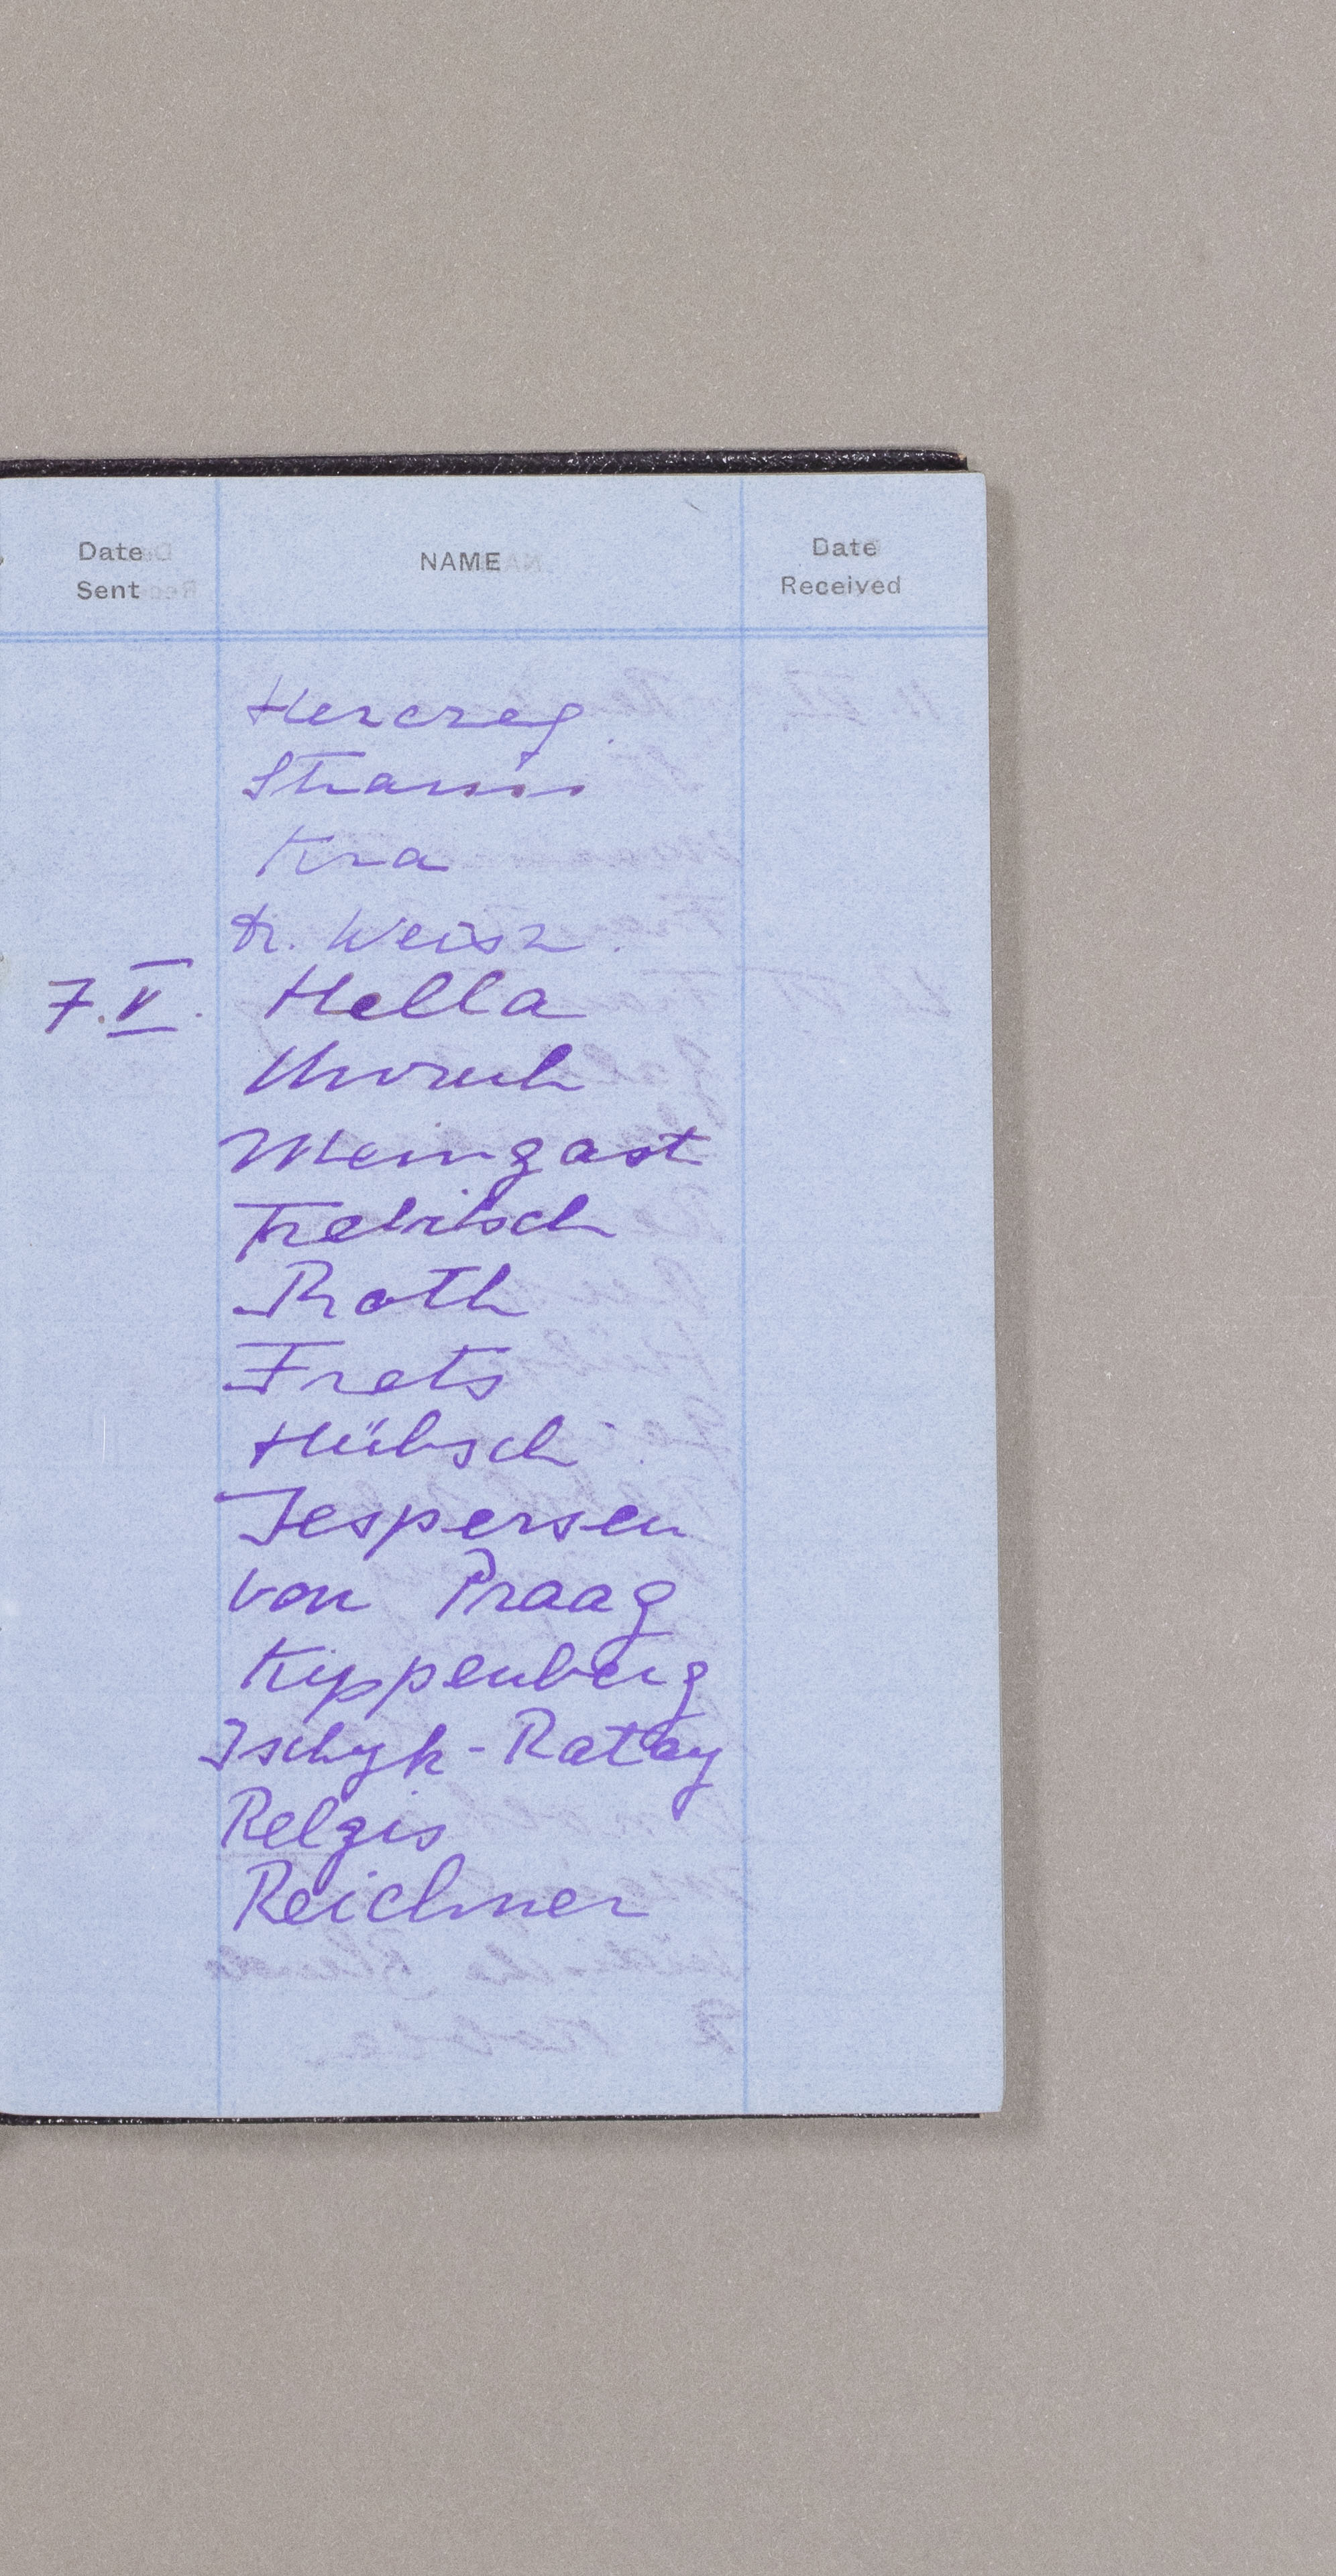 Date Sent NAME Date Received
Herczeg
Strauss
Kra
Dr. Weisz
7. V. Hella
Unruh
Meingast
Trebitsch
Roth
Frets
Hübsch
Jespersen
von Praag
Kippenberg
Ischyk-Ratay
Relgis
Reichner